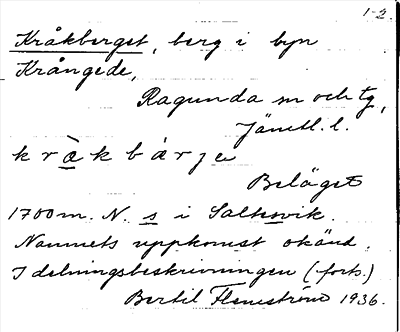 1-2.
Kråkberget, berg i byn
Krångede,
Ragunda sn och tg,
Jämtl. l.
kràkbárje
Beläget
1700 m. N. s i Saltsvik.
Namnets uppkomst okänd.
I delningsbeskrivningen (forts.)
Bertil Flemström 1936.